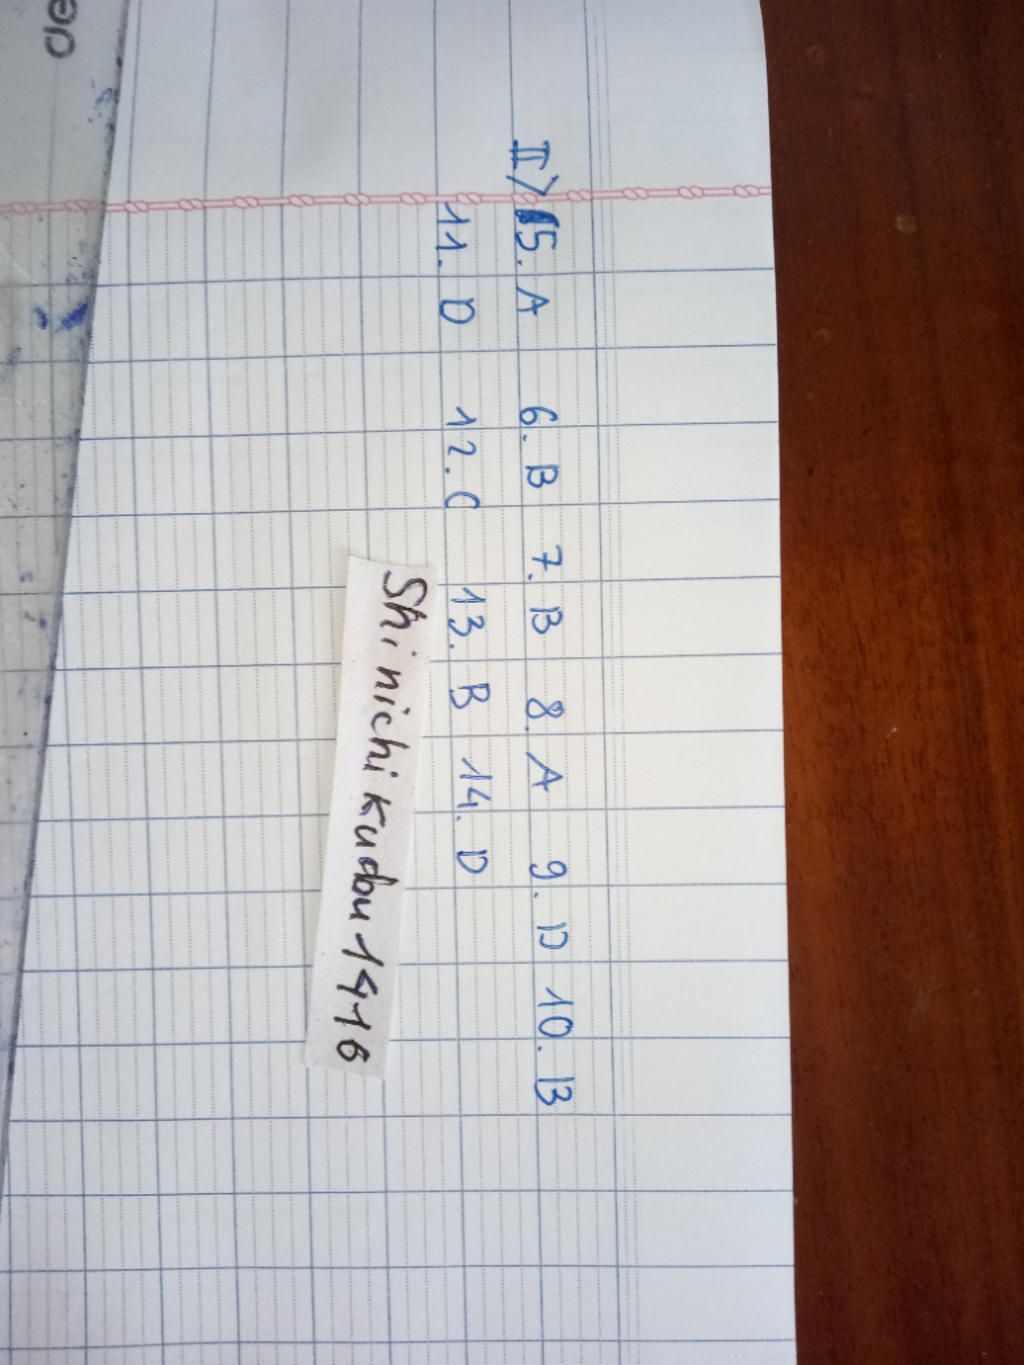 II) 5. A 6. B 7. B 8. A 9. D 10. B
11. D 12. C 13. B 14. D
Shinichi Kudou 1416
de